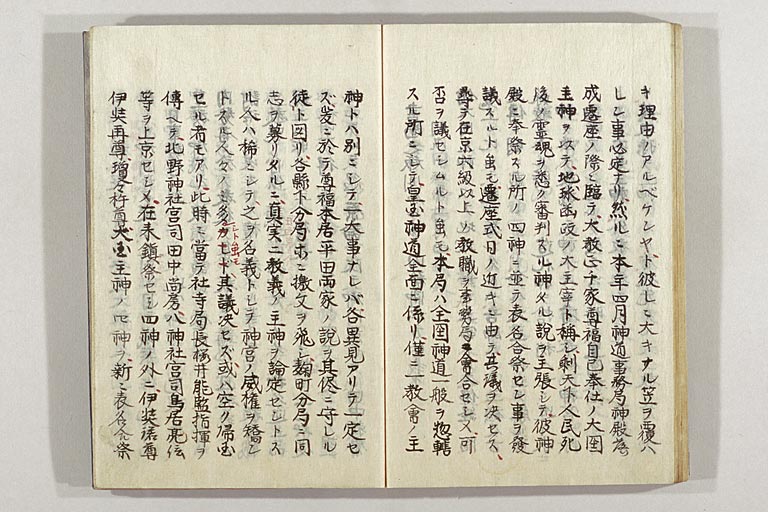 キ理由ノアルベケンヤト彼レニ大キナル笠ヲ覆ハ
レシ事必定ナリ然ルニ本年四月神道事務局神殿落
成遷座ノ際ニ臨テ大教正千家尊福自己奉仕ノ大国
主神ヲ以テ地球函政ノ大主宰ト称シ剰天下人民死
後ノ霊魂ヲ悉ク審判スル神タル説ヲ主張シテ彼神
殿ニ奉祭スル所ノ四神ニ並テ表名合祭セン事ヲ発
議スルト虽モ遷座式日ノ近キニ由テ其議ヲ決セス
尋テ在京六級以上ノ教職ヲ事務局ヘ会合セシメ可
否ヲ議セシムルト虽モ本局ハ全国神道一般ヲ惣轄
スル所ニシテ皇国神道全面ニ係リ僅ニ一教會ノ主
神トハ別ニシテ一大事ナレバ各異見アリテ一定セ
ズ爰ニ於テ尊福本居平田両家ノ説ヲ其侭ニ守レル
徒ト図リ各縣下分局ホニ撽文ヲ飛シ麹町分局ニ同
志ヲ募リタルニ真実ニ教義ノ主神ヲ論定セントス
ル人ハ稀ニシテ之ヲ名義トシテ神宮ノ威権ヲ矯ン
トスル人々ノミ多カリシト虽モ其議決セズ或ハ空ク帰国
セル者モアリ此時ニ當テ社寺局長桜井能監指揮ヲ
傳ヘテ北野神社宮司田中尚房八神社宮司鳥居亮信
等ヲ上京セシメ在来鎮祭セシ四神ノ外ニ伊奘諾尊
伊奘冉尊瓊々杵尊大国主神ノ四神ヲ新ニ表名合祭